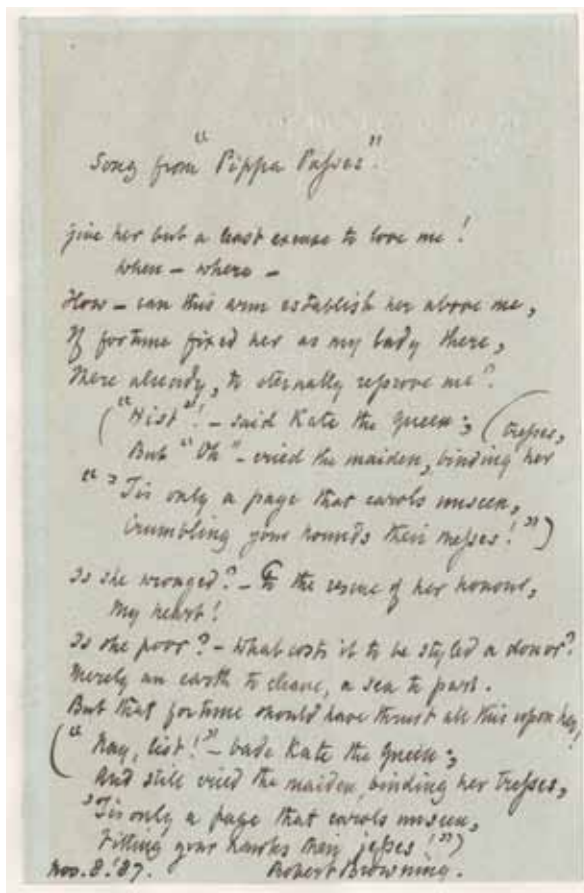 Song from "Pippa Passes".
Give her but a least excuse to love me!
When – where –
How – can this arm establish her above me,
If fortune fixed her as my lady there,
There already, to eternally reprove me?
("Hist"! – said Kate the Queen;
But "Oh" – cried the maiden, binding her (tresses,
"'Tis only a page that carols unseen,
Crumbling your hounds their messes!")
Is she wronged? – To the rescue of her honour,
My heart!
Is she poor? – What costs it to be styled a donor?
Merely an earth to cleave, a sea to part.
But that fortune should have thrust all this upon her!
("Nay, list!" – bade Kate the Queen;
And still cried the maiden, binding her tresses,
'Tis only a page that carols unseen,
Fitting your hawks their jesses!")
Nov. 8. '87. Robert Browning.